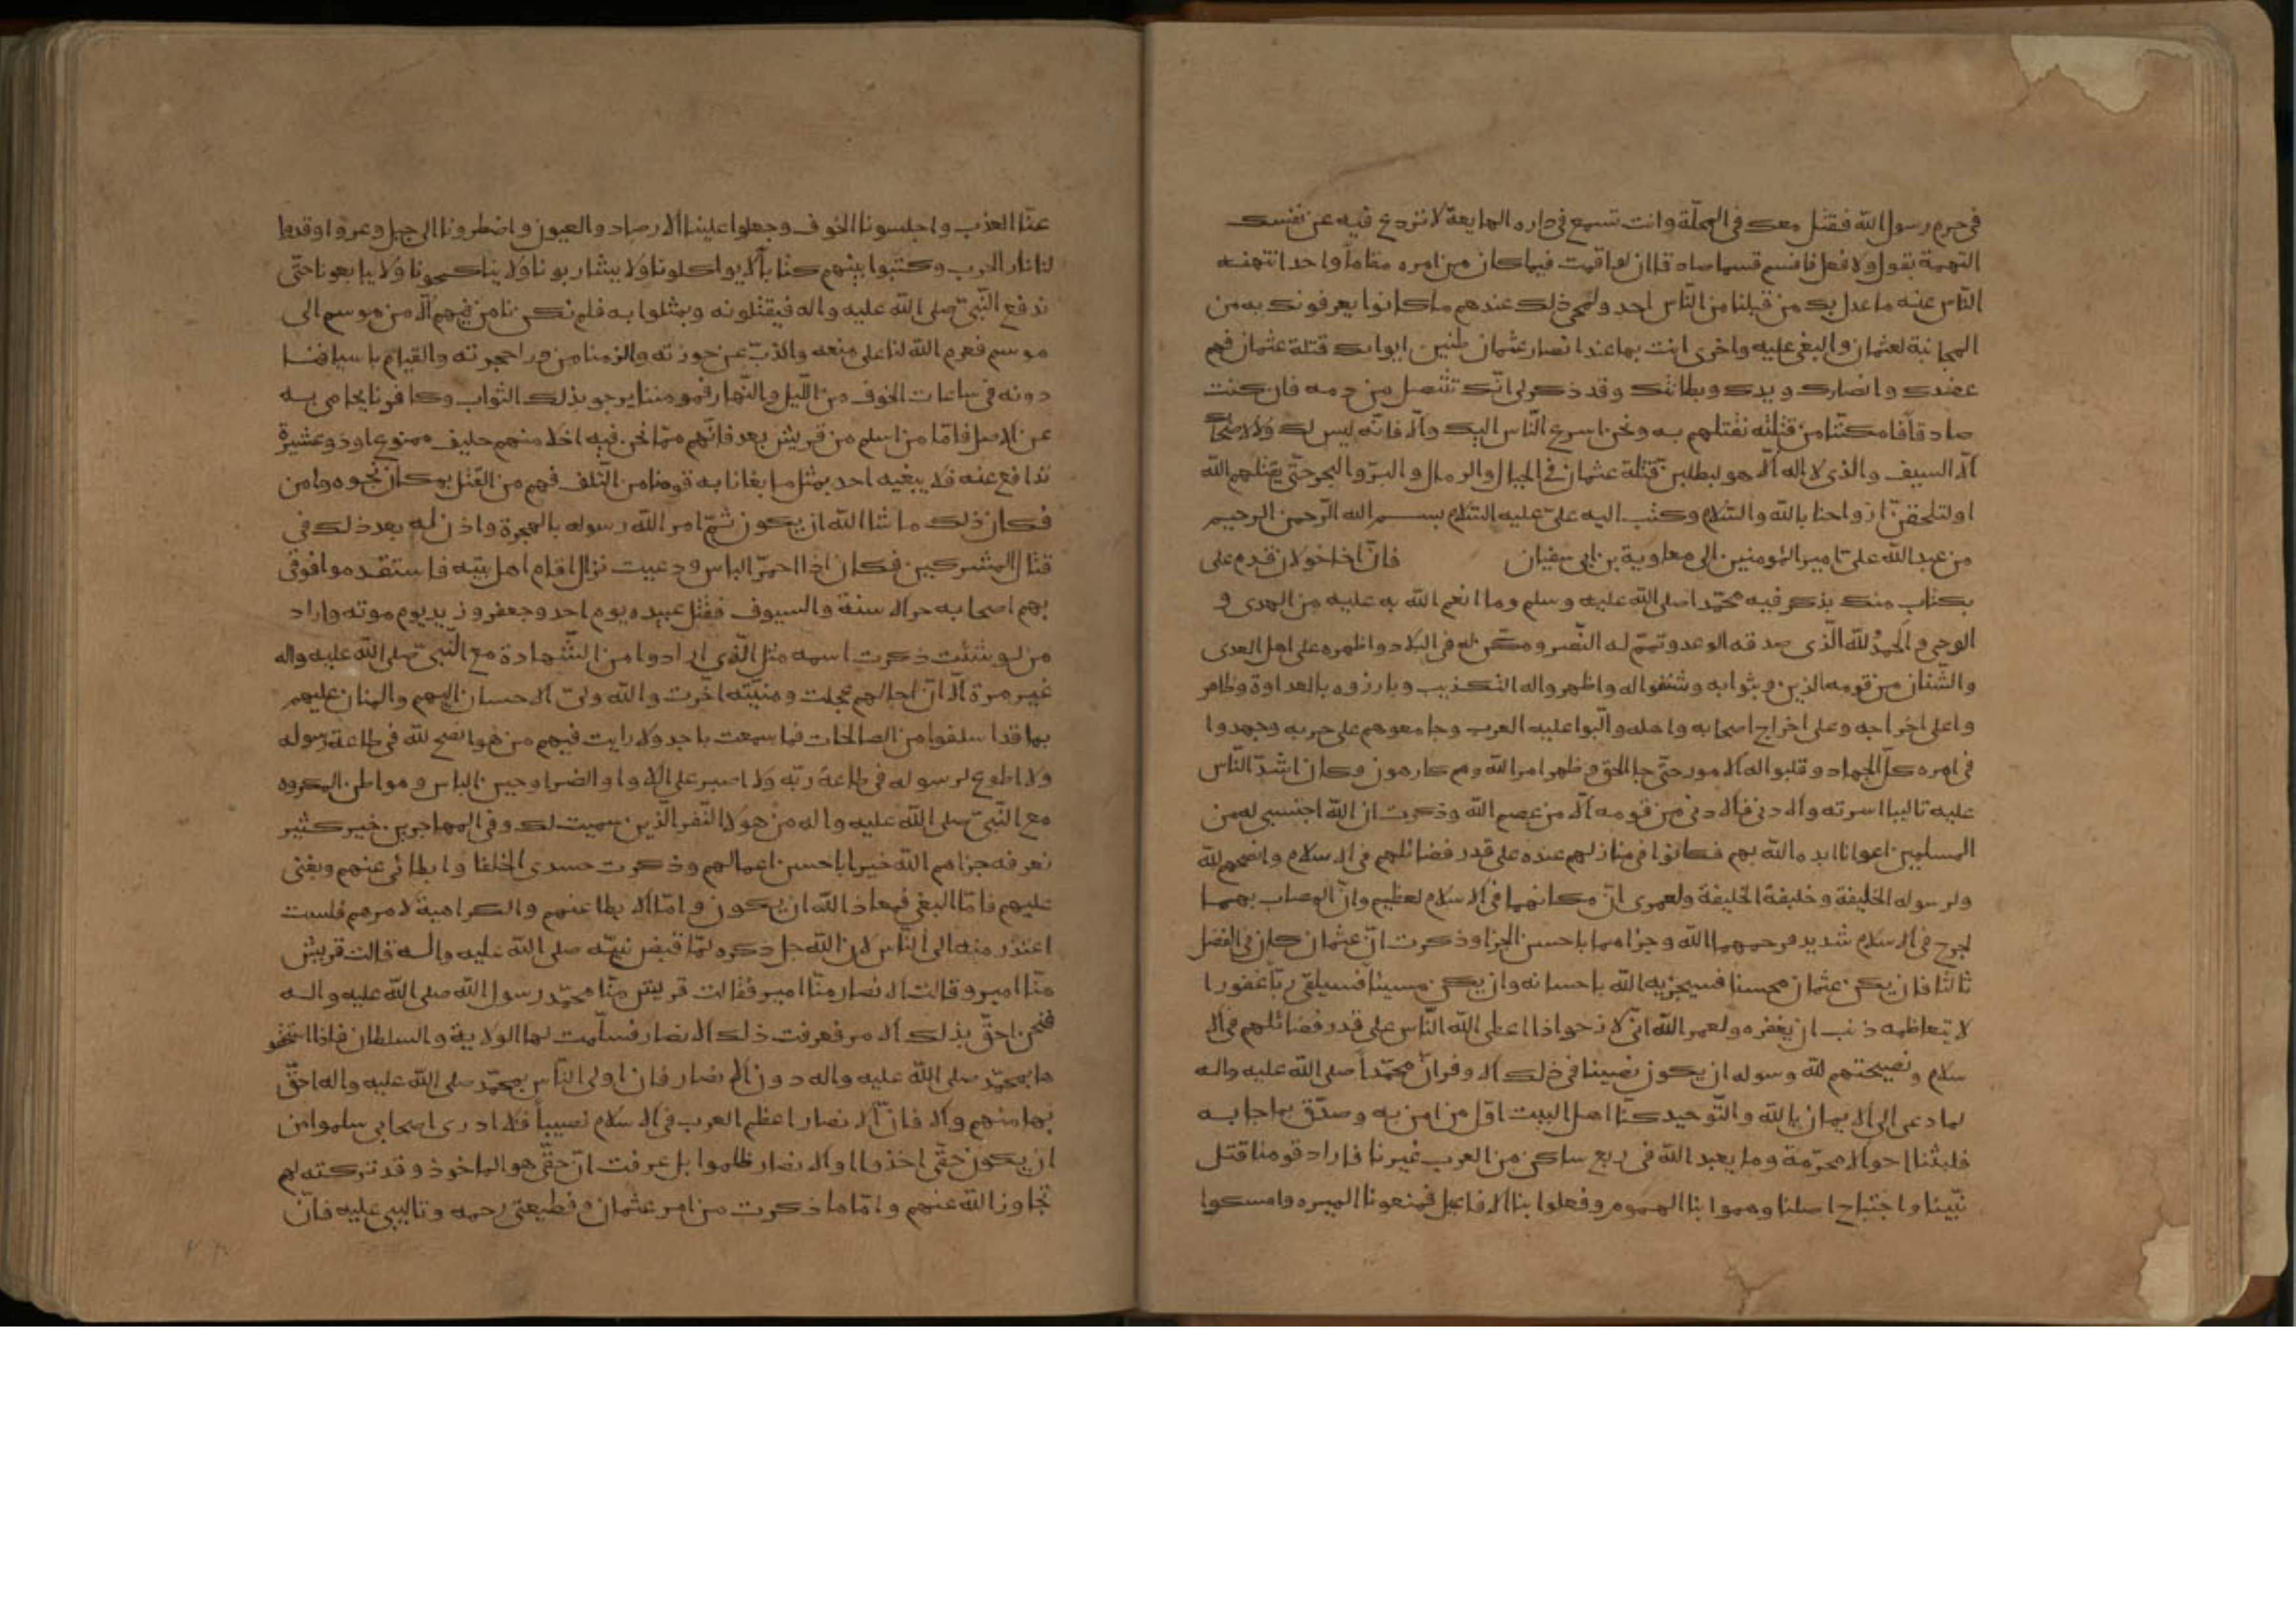 في حرم رسول الله فقتل معك في المحلّة وانت تسمع في داره الهايعة لا تردع فيه عن نفسك
التهمة بقول ولا فعل فاقسم قسما صادقا ان لو اقمت فيما كان من امره مقاماً واحدا تنهنه
النّاس عنه ما عدل بك من قبلنا من النّاس احد ولمحى ذلك عندهم ما كانوا يعرفونك به من
المجانبة لعثمان والبغي عليه واخرى انت بها عند انصار عثمان ظنين ايواك قتلة عثمان فهم
عضدك وانصارك ويدك وبطانتك وقد ذكر لي انّك تتنصل من دمه فان كنت
صادقاً فامكنّا من قتلته نقتلهم به ونحن اسرع النّاس اليك والّا فانّه ليس لك ولا لاصحابك
الّا السيف والذى لا اله الّا هو ليطلبن قتلة عثمان في الجبال والرمال والبرّ والبحر حتّى يقتلهم الله
او لتلحقنّ ارواحنا بالله والسّلام وكتب اليه علىّ عليه السّلام بسم الله الرّحمن الرحيم
من عبد الله علىّ امير المؤمنين الى معاوية بن ابى سفيان فانّ اخا خولان قدم على
بكتاب منك يذكر فيه محمّدا صلى الله عليه وسلم وما انعم الله به عليه من الهدى و
الوحى والحمدُ لله الّذى صدقه الوعد وتمّم له النّصر ومكّن له في البلاد واظهره على اهل العدى
والشّنان من قومه الذين وثبوا به وشنفوا له واظهروا له التكذيب وبارزوه بالعداوة وظاهر
وا على اخراجه وعلى اخراج اصحابه واهله والّبوا عليه العرب وجامعوهم على حربه وجهدوا
في امره كلّ الجهاد وقلبوا له الامور حتّى جا الحق وظهر امر الله وهم كارهون وكان اشدّ النّاس
عليه تاليبا اسرته والادنى فالادنى من قومه الّا من عصم الله وذكرت ان الله اجتبى له من
المسلمين اعوانا ايده الله بهم فكانوا في منازلهم عنده على قدر فضائلهم في الاسلام وانصحهم لله
ولرسوله الخليفة وخليفة الخليفة ولعمرى انّ مكانهما في الاسلام لعظيم وانّ المصاب بهما
لجرح في الاسلام شديد فرحمهما الله وجزاهما باحسن الجزا وذكرت انّ عثمان كان في الفضل
ثالثا فان يكن عثمان محسنا فسيجزيه الله باحسانه وان يكن مسيئاً فسيلقى ربّاً غفورا
لا يتعاظمه ذنب ان يغفره ولعمر الله انّى لارجو اذا اعطى الله النّاس على قدر فضائلهم في الا
سلام ونصيحتهم لله ورسوله ان يكون نصيبنا في ذلك الاوفر انّ محمّداً صلى الله عليه واله
لما دعى الى الايمان بالله والتّوحيد كنّا اهل البيت اوّل من امن به وصدّق بما جا به
فلبثنا احوالا محرّمة وما يعبد الله في ربع ساكن من العرب غيرنا فاراد قومنا قتل
نبّينا واجتياح اصلنا وهموا بنا الهموم وفعلوا بنا الافاعيل فمنعونا الميره وامسكوا
عنّا العذب واحلسونا الخوف وجعلوا علينا الارصاد والعيون واضطرونا الى جبل وعر واوقدوا
لنا نار الحرب وكتبوا بينهم كتابا الّا يواكلونا ولا يشاربونا ولا يناكحونا ولا يبايعونا حتّى
ندفع النّبىّ صلى الله عليه واله فيقتلونه ويمثلوا به فلم نكن نامن فيهم الّا من موسم الى
موسم فعزم الله لنا على منعه والذبّ عن حوزته والزمنا من ورا حجرته والقيام باسيافنا
دونه في ساعات الخوف من اللّيل والنّهار فمومننا يرجو بذلك الثواب وكافرنا يحامى به
عن الاصل فامّا من اسلم من قريش بعد فانّهم ممّا نحن فيه اخلا منهم حليف ممنوع او ذو عشيرة
تدافع عنه فلا يبغيه احد بمثل ما بغانا به قومنا من التّلف فهم من القتل بمكان نجوه وامن
فكان ذلك ما شا الله ان يكون ثمّ امر الله رسوله بالهجرة واذن له بعد ذلك في
قتال المشركين فكان اذا احمرّ الباس ودعيت نزال اقام اهل بيته فاستقدموا فوقى
بهم اصحابه حرّ الاسنة والسيوف فقتل عبيده يوم احد وجعفر وزيد يوم موته واراد
من لو شئت ذكرت اسمه مثل الّذى ارادوا من الشّهادة مع النّبىّ صلى الله عليه واله
غير مرة الّا انّ اجالهم عجلت ومنيّته اخّرت والله ولىّ الاحسان اليهم والمنان عليهم
بما قد اسلفوا من الصالحات فما سمعت باحد ولا رايت فيهم من هو انصح لله في طاعة رسوله
ولا اطوع لرسوله في طاعة ربّه ولا اصبر على اللاوا والضرا وحين الباس ومواطن المكروه
مع النّبىّ صلى الله عليه واله من هولا النّفر الّذين سميت لك وفي المهاجرين خير كثير
نعرفه جزاهم الله خيرا باحسن اعمالهم وذكرت حسدى الخلفا وابطائى عنهم وبغيى
عليهم فامّا البغي فمعاذ الله ان يكون وامّا الابطا عنهم والكراهية لامرهم فلست
اعتذر منه الى النّاس لان الله جل ذكره لمّا قبض نبيّه صلى الله عليه واله قالت قريش
منّا امير وقالت الانصار منّا امير فقالت قريش منّا محمّد رسول الله صلى الله عليه واله
فنحن احقّ بذلك الامر فعرفت ذلك الانصار فسلّمت لها الولاية والسلطان فاذا استحقو
ها بمحمّد صلى الله عليه واله دون الانصار فان اولى النّاس بمحمّد صلى الله عليه واله احقّ
بها منهم والا فانّ الانصار اعظم العرب في الاسلام نصيباً فلا ادرى اصحابى سلموا من
ان يكون حقّى اخذوا او الانصار ظلموا بل عرفت انّ حقّى هو الماخوذ وقد تركته لهم
تجاوز الله عنهم وامّا ما ذكرت من امر عثمان وقطيعتى رحمه وتاليبى عليه فانّ